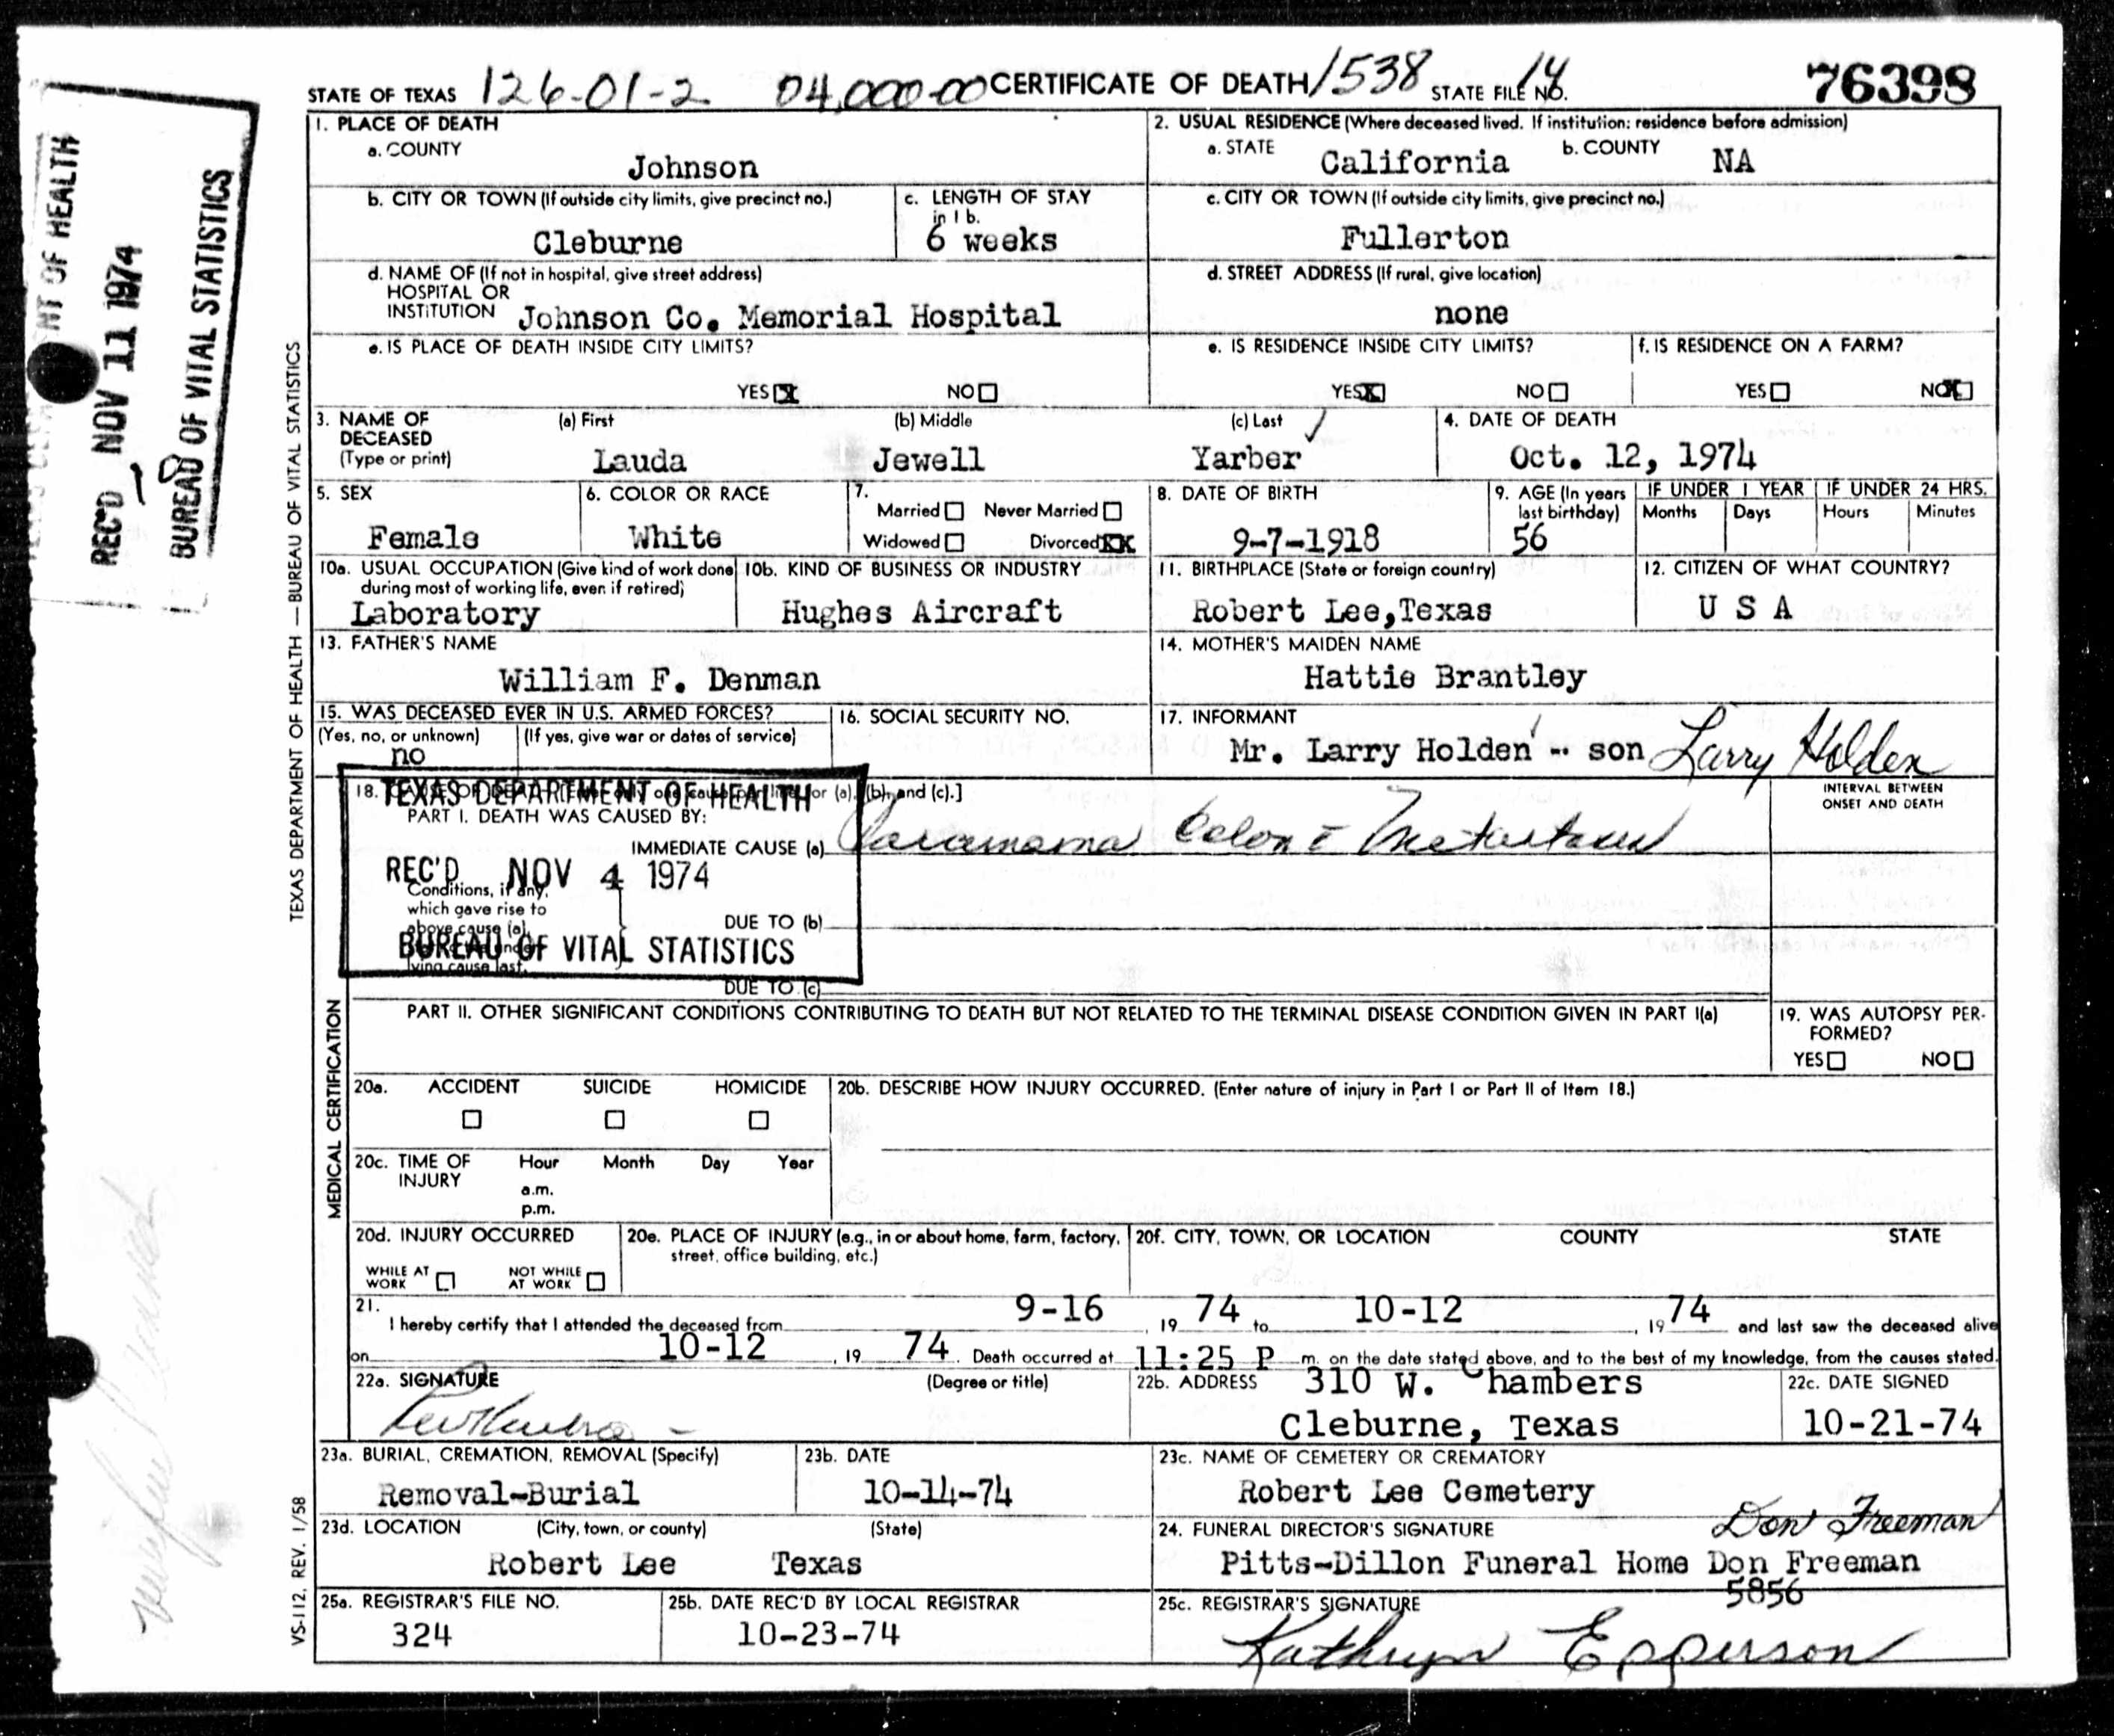 STATE OF TEXAS 126-01-2 04,000-00 CERTIFICATE OF DEATH 1538 STATE FILE NO. 14 76398
1. PLACE OF DEATH
a. COUNTY
Johnson
2. USUAL RESIDENCE (Where deceased lived. If institution: residence before admission)
a. STATE California b. COUNTY NA
b. CITY OR TOWN (If outside city limits, give precinct no.)
Cleburne
c. LENGTH OF STAY
in 1 b.
6 weeks
c. CITY OR TOWN (If outside city limits, give precinct no.)
Fullerton
d. NAME OF (If not in hospital, give street address)
HOSPITAL OR
INSTITUTION Johnson Co. Memorial Hospital
d. STREET ADDRESS (If rural, give location)
none
e. IS PLACE OF DEATH INSIDE CITY LIMITS?
YES X NO
e. IS RESIDENCE INSIDE CITY LIMITS?
YES X NO
f. IS RESIDENCE ON A FARM?
YES NO X
3. NAME OF
DECEASED
(Type or print)
(a) First (b) Middle (c) Last
Lauda Jewell Yarber
4. DATE OF DEATH
Oct. 12, 1974
5. SEX
Female
6. COLOR OR RACE
White
7.
Married Never Married
Widowed Divorced XX
8. DATE OF BIRTH
9-7-1918
9. AGE (In years
last birthday)
56
IF UNDER 1 YEAR IF UNDER 24 HRS.
Months Days Hours Minutes
10a. USUAL OCCUPATION (Give kind of work done
during most of working life, even if retired)
Laboratory
10b. KIND OF BUSINESS OR INDUSTRY
Hughes Aircraft
11. BIRTHPLACE (State or foreign country)
Robert Lee,Texas
12. CITIZEN OF WHAT COUNTRY?
U S A
13. FATHER'S NAME
William F. Denman
14. MOTHER'S MAIDEN NAME
Hattie Brantley
15. WAS DECEASED EVER IN U.S. ARMED FORCES?
(Yes, no, or unknown) (If yes, give war or dates of service)
no
16. SOCIAL SECURITY NO.
17. INFORMANT
Mr. Larry Holden - son Larry Holden
18. CAUSE OF DEATH (a), (b), and (c).]
PART I. DEATH WAS CAUSED BY:
IMMEDIATE CAUSE (a) Carcinoma Colon c̄ Metastases
INTERVAL BETWEEN
ONSET AND DEATH
Conditions, if any,
which gave rise to
above cause (a),
lying cause last.
DUE TO (b)
DUE TO (c)
TEXAS DEPARTMENT OF HEALTH
REC'D NOV 4 1974
BUREAU OF VITAL STATISTICS
PART II. OTHER SIGNIFICANT CONDITIONS CONTRIBUTING TO DEATH BUT NOT RELATED TO THE TERMINAL DISEASE CONDITION GIVEN IN PART I(a)
19. WAS AUTOPSY PER-
FORMED?
YES NO
20a. ACCIDENT SUICIDE HOMICIDE
20b. DESCRIBE HOW INJURY OCCURRED. (Enter nature of injury in Part I or Part II of Item 18.)
20c. TIME OF
INJURY
Hour Month Day Year
a.m.
p.m.
20d. INJURY OCCURRED
WHILE AT
WORK
NOT WHILE
AT WORK
20e. PLACE OF INJURY (e.g., in or about home, farm, factory,
street, office building, etc.)
20f. CITY, TOWN, OR LOCATION COUNTY STATE
21.
I hereby certify that I attended the deceased from 9-16, 19 74 to 10-12, 19 74 and last saw the deceased alive
on 10-12, 19 74. Death occurred at 11:25 P m. on the date stated above, and to the best of my knowledge, from the causes stated.
22a. SIGNATURE (Degree or title)
22b. ADDRESS 310 W. Chambers
Cleburne, Texas
22c. DATE SIGNED
10-21-74
23a. BURIAL, CREMATION, REMOVAL (Specify)
Removal-Burial
23b. DATE
10-14-74
23c. NAME OF CEMETERY OR CREMATORY
Robert Lee Cemetery
23d. LOCATION (City, town, or county) (State)
Robert Lee Texas
24. FUNERAL DIRECTOR'S SIGNATURE Don Freeman
Pitts-Dillon Funeral Home Don Freeman
5856
25a. REGISTRAR'S FILE NO.
324
25b. DATE REC'D BY LOCAL REGISTRAR
10-23-74
25c. REGISTRAR'S SIGNATURE
Kathryn Epperson
TEXAS DEPARTMENT OF HEALTH — BUREAU OF VITAL STATISTICS
MEDICAL CERTIFICATION
VS-112, REV. 1/58
NT OF HEALTH
REC'D NOV 11 1974
BUREAU OF VITAL STATISTICS